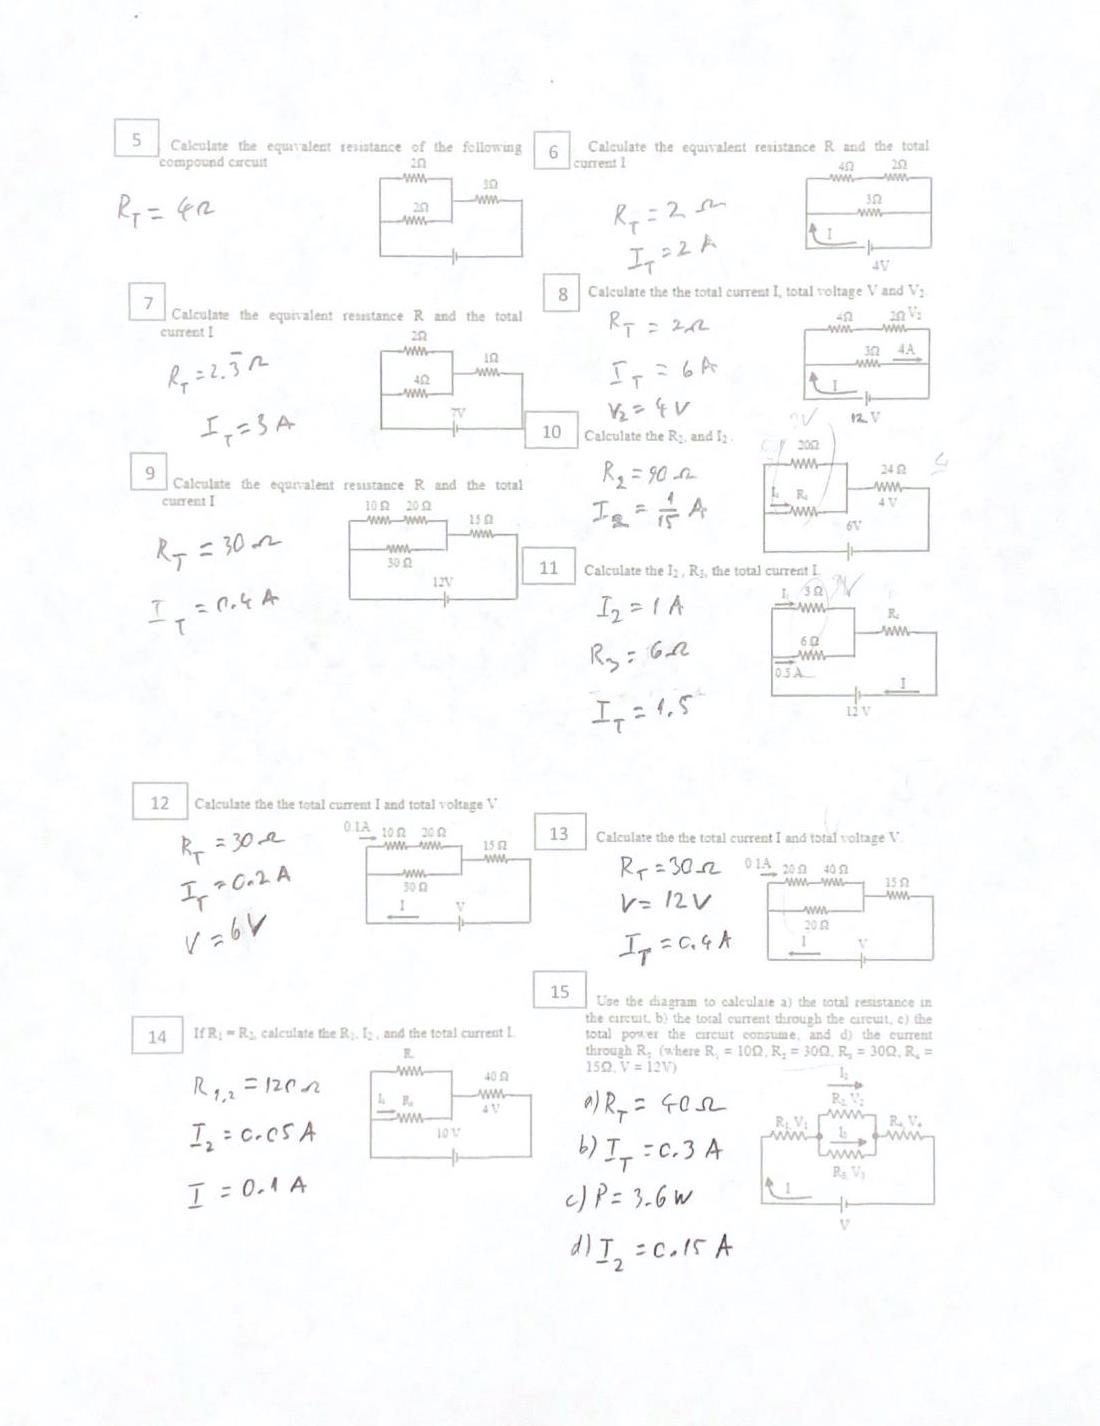 5
Calculate the equivalent resistance of the following
compound circuit
2Ω
3Ω
2Ω
R_T = 4Ω
6
Calculate the equivalent resistance R and the total
current I
4Ω 2Ω
3Ω
I
4V
R_T = 2 Ω
I_T = 2 A
7
Calculate the equivalent resistance R and the total
current I
2Ω
1Ω
4Ω
7V
R_T = 2.3̄ Ω
I_T = 3 A
8
Calculate the the total current I, total voltage V and V₂.
4Ω 2Ω V₂
3Ω 4A
I
12 V
R_T = 2Ω
I_T = 6 A
V₂ = 4 V
9
Calculate the equivalent resistance R and the total
current I
10 Ω 20 Ω
15 Ω
30 Ω
12V
R_T = 30 Ω
I_T = 0.4 A
10
Calculate the R₂, and I₂.
24 Ω
4 V
6V
R₂ = 90 Ω
I₂ = 1/15 A
11
Calculate the I₂, R₃, the total current I.
3 Ω
6 Ω
0.5 A
I
12 V
I₂ = 1 A
R₃ = 6Ω
I_T = 1.5
12
Calculate the the total current I and total voltage V
0.1A 10 Ω 20 Ω
15 Ω
I V
R_T = 30 Ω
I_T = 0.2 A
V = 6V
13
Calculate the the total current I and total voltage V.
0.1A 20 Ω 40 Ω
15 Ω
20 Ω
I V
R_T = 30 Ω
V = 12 V
I_T = 0.4 A
14
If R₁ = R₂, calculate the R₁, I₂, and the total current I.
40 Ω
4 V
10 V
R₁,₂ = 120 Ω
I₂ = 0.05 A
I = 0.1 A
15
Use the diagram to calculate a) the total resistance in
the circuit, b) the total current through the circuit, c) the
total power the circuit consume, and d) the current
through R₂ (where R₁ = 10Ω, R₂ = 30Ω, R₃ = 30Ω, R₄ =
15Ω, V = 12V)
I₂
R₂ V₂
R₁ V₁ R₄ V₄
I₃
R₃ V₃
I
V
a) R_T = 40 Ω
b) I_T = 0.3 A
c) P = 3.6 W
d) I₂ = 0.15 A